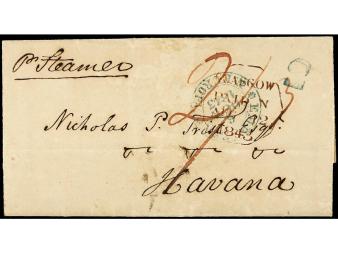 pr Steamer
GLASGOW
1843
2/3
Nicholas P. Trist Esqr.
Havana